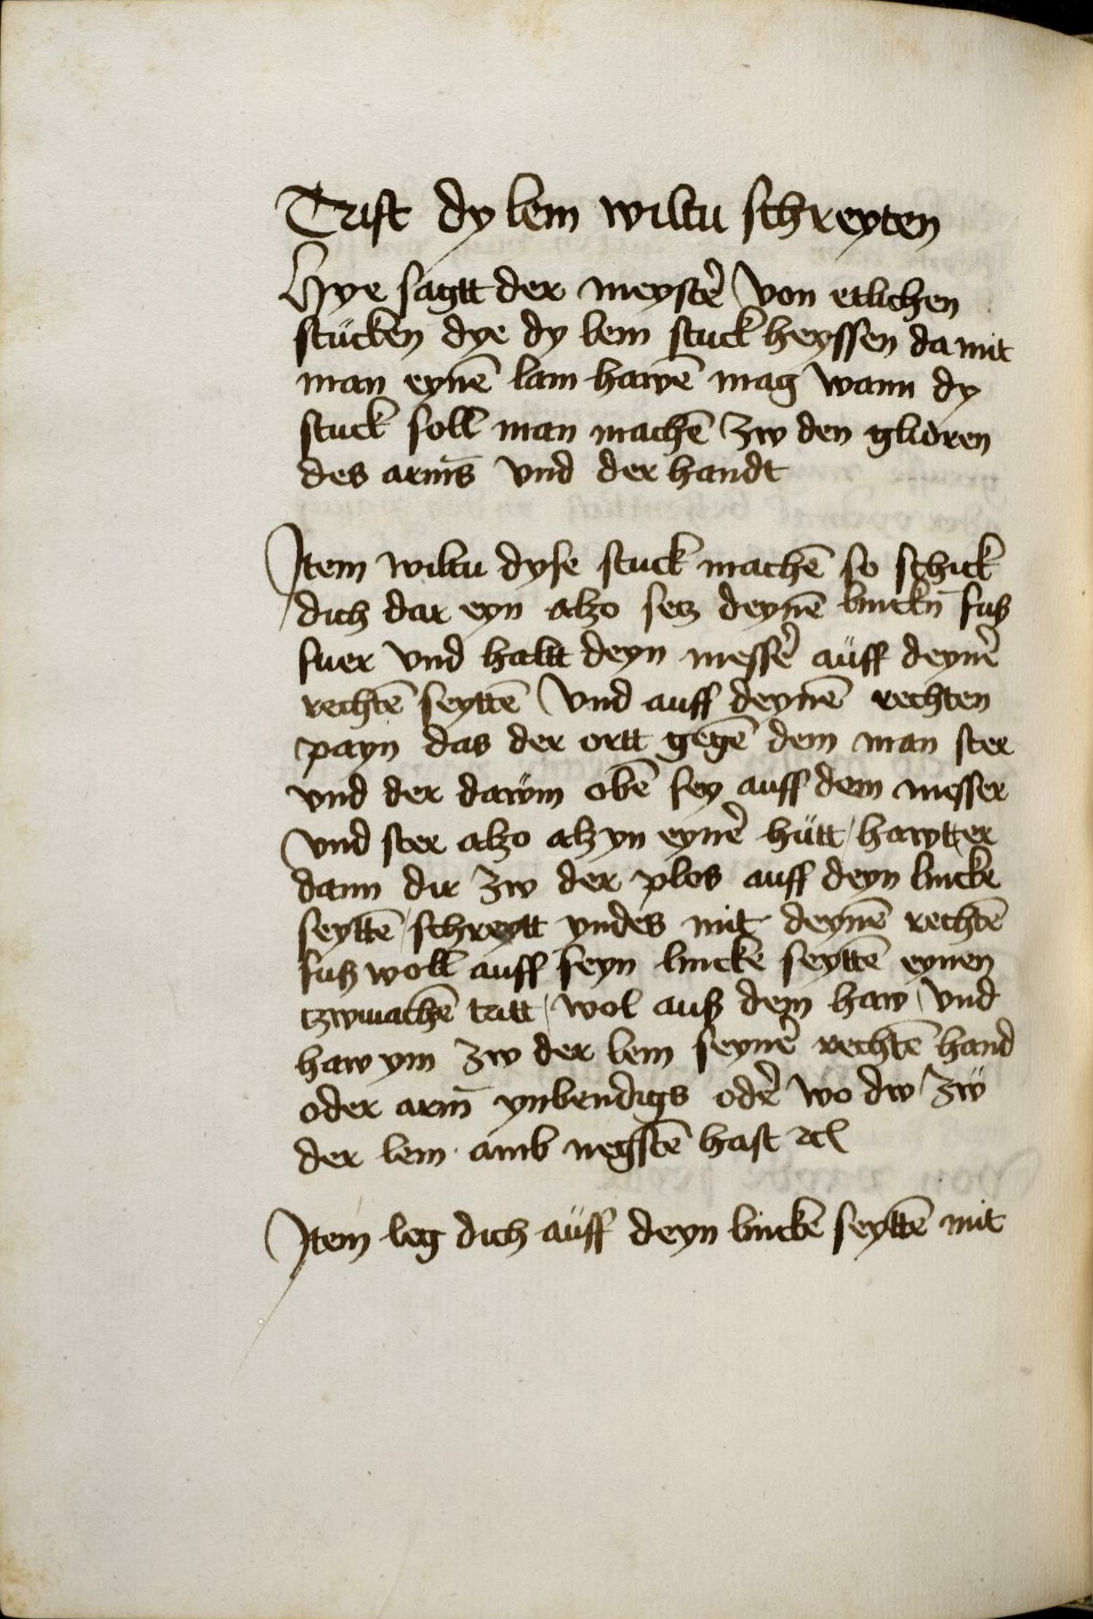 Trist dy lem wiltu schreyten
Hye sagtt der meystẽ von etlichen
stücken dye dy lem stuck heyssen da mit
man eynẽ lam hawẽ mag wann dy
stuck soll man machẽ zw den glidren
des arm̄s vnd der handt
Item wiltu dyse stuck machẽ so schick
dich dar eyn alzo setz deynẽ linckn̄ fuß
fuer vnd halltt deyn messẽ aüff deynẽ
rechtẽ seyttẽ vnd auff deynẽ rechten
payn das der ortt gegẽ dem man stee
vnd der dawm̈ obẽ sey auff dem messer
vnd stee alzo alz yn eynẽ hütt / hawtt er
dann dir zw der plos auff deyn lincke
seyttẽ / schreytt yndes mit deynẽ rechtẽ
fuß woll auff seyn lincke seyttẽ eynen
tzwuachẽ tritt / wol auß dem haw / vnd
haw ym zw der lem seynẽ rechtẽ hand
oder arm̄ ynbendigs odẽ wo dw zẅ
der lem amb negstẽ hast ꝛcꝭ
Item leg dich aüff deyn linckẽ seyttẽ mit